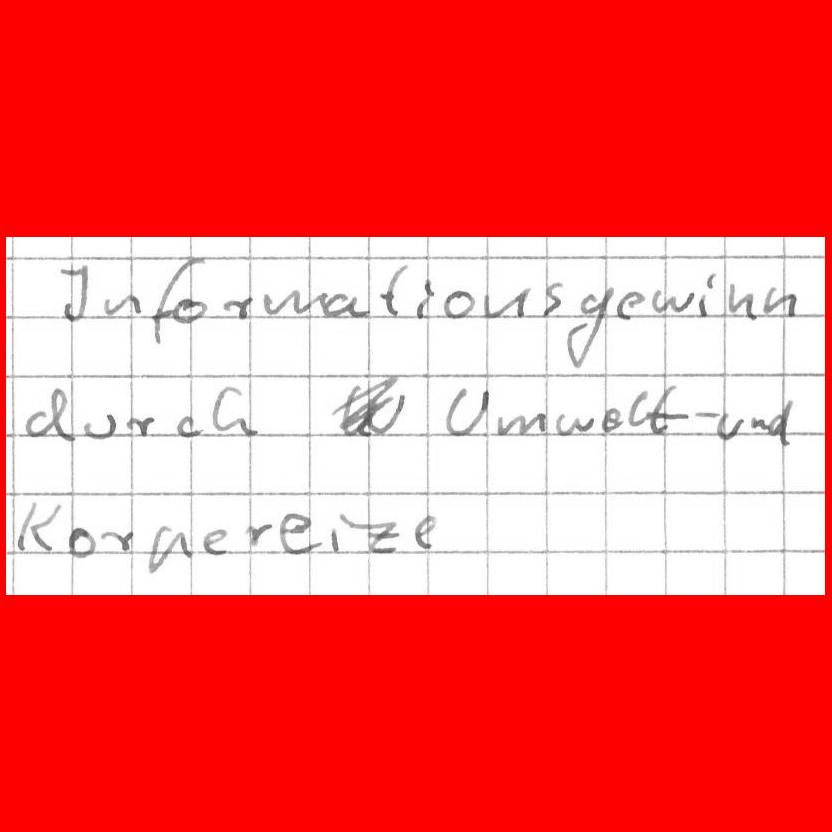 Informationsgewinn
durch Umwelt-und
Korpereize